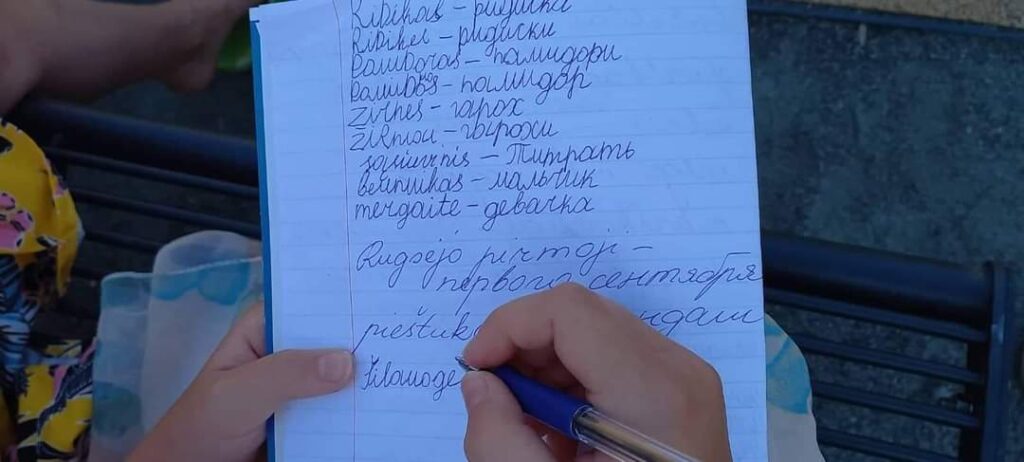 Ridikas – ридика
Ridikei – ридиски
Pamidoras – памидори
Pamidos – памидор
Žirnes – гарох
Žirniai – гырохи
sąsiuvinis – Титрать
berniukas – мальчик
mergaite – девачка
Rugsėjo pirmoji –
первого сентября
pieštuk ндаш
Filomoge